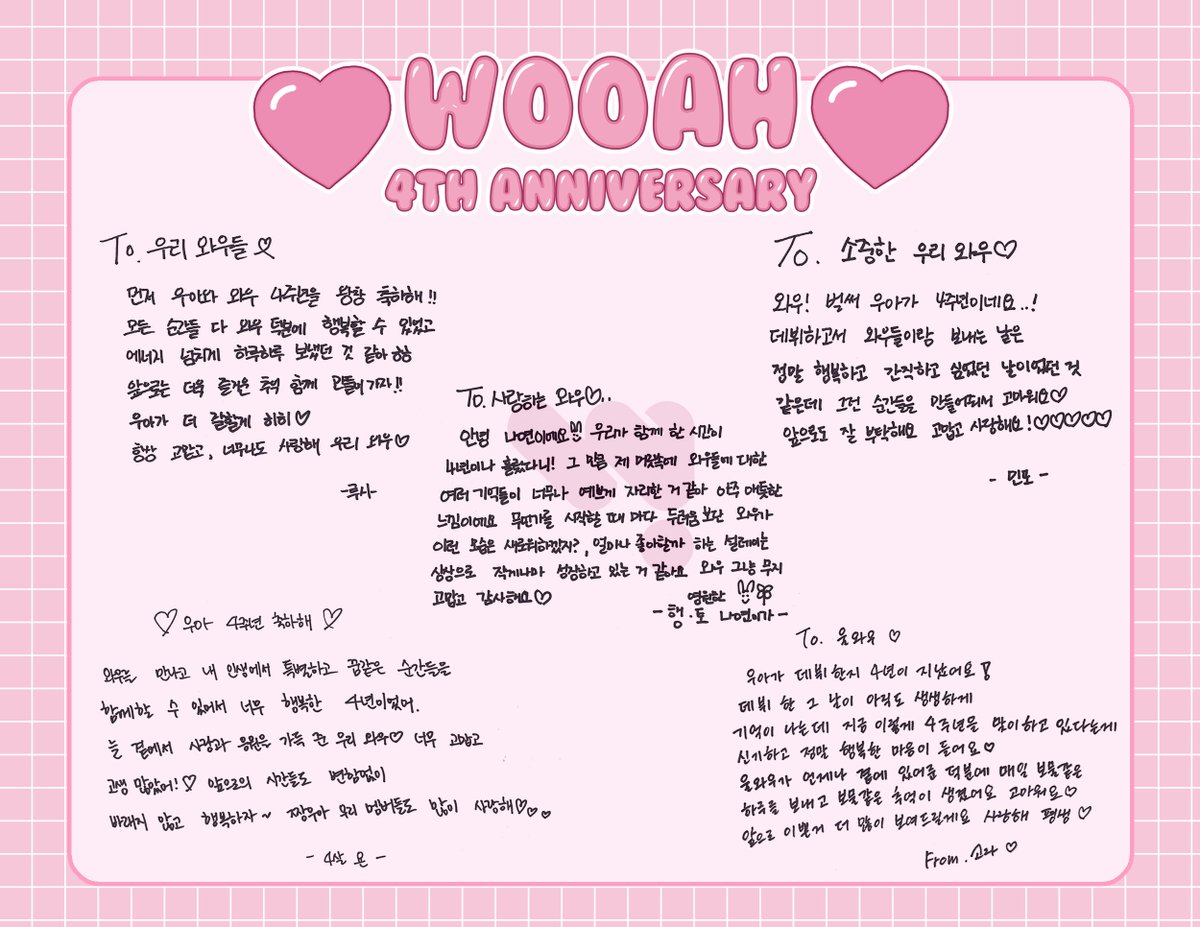 WOOAH
4TH ANNIVERSARY
To. 우리 와우들♡
먼저 우아와 와우 4주년을 왕창 축하해!!
모든 순간들 다 와우 덕분에 행복할 수 있었고
에너지 넘치게 하루하루 보냈던 것 같아 ㅎㅎ
앞으로는 더욱 즐거운 추억 함께 만들어가자!!
우아가 더 잘할게 히히♡
항상 고맙고, 너무나도 사랑해 우리 와우♡
-루사-
To. 소중한 우리 와우♡
와우! 벌써 우아가 4주년이네요..!
데뷔하고서 와우들이랑 보내는 날은
정말 행복하고 간직하고 싶었던 날이었던 것
같은데 그런 순간들을 만들어줘서 고마워요♡
앞으로도 잘 부탁해요 고맙고 사랑해요!♡♡♡♡♡
- 민또 -
To. 사랑하는 와우♡..
안녕 나연이에요!! 우리가 함께 한 시간이
4년이나 흘렀다니! 그 만큼 제 머릿속에 와우들에 대한
여러 기억들이 너무나 예쁘게 자리한 거 같아 아주 애틋한
느낌이에요 무언가를 시작할 때 마다 두려움 보단 와우가
이런 모습은 새로워하겠지?, 얼마나 좋아할까 하는 설레이는
상상으로 작게나마 성장하고 있는 거 같아요 와우 그냥 무지
고맙고 감사해요♡
영원한
- 행.토 나연이가 -
♡우아 4주년 축하해♡
와우들 만나고 내 인생에서 특별하고 꿈같은 순간들을
함께할 수 있어서 너무 행복한 4년이었어.
늘 곁에서 사랑과 응원을 가득 준 우리 와우♡ 너무 고맙고
고생 많았어!♡ 앞으로의 시간들도 변함없이
바래지 않고 행복하자~ 짱우아 우리 멤버들도 많이 사랑해♡♡♡
- 4살 온 -
To. 울와우 ♡
우아가 데뷔한지 4년이 지났어요!
데뷔 한 그 날이 아직도 생생하게
기억이 나는데 지금 이렇게 4주년을 맞이하고 있다는게
신기하고 정말 행복한 마음이 들어요♡
울와우가 언제나 곁에 있어준 덕분에 매일 보물같은
하루를 보내고 보물같은 추억이 생겼어요 고마워요♡
앞으로 이쁜거 더 많이 보여드릴게요 사랑해 평생 ♡
From. 소라 ♡